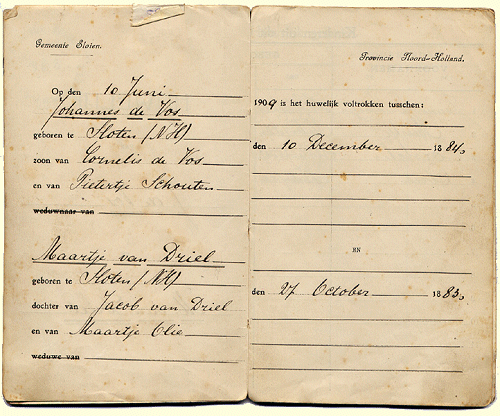 Gemeente Sloten.
Provincie Noord-Holland.
Op den 10 Juni 1909 is het huwelijk voltrokken tusschen:
Johannes de Vos
geboren te Sloten (NH) den 10 December 1884.
zoon van Cornelis de Vos
en van Pietertje Schouten
weduwnaar van
EN
Maartje van Driel
geboren te Sloten (NH) den 27 October 1883.
dochter van Jacob van Driel
en van Maartje Olie
weduwe van